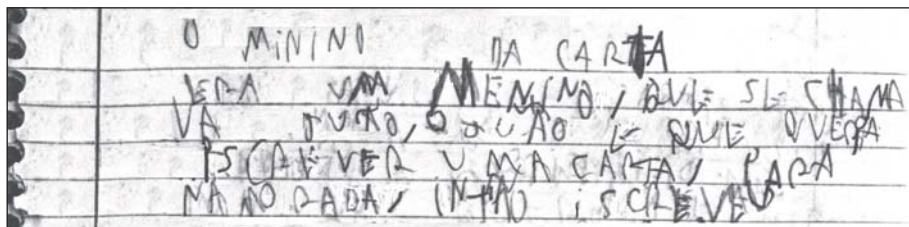 O MININO DA CARTA
ERA UM MENINO, QUE SE CHAMA
VA JUÃO, O JUÃO E QUE QUERA
ISCREVER UMA CARTA, PARA
NAMORADA, INTÃO ISCREVEU